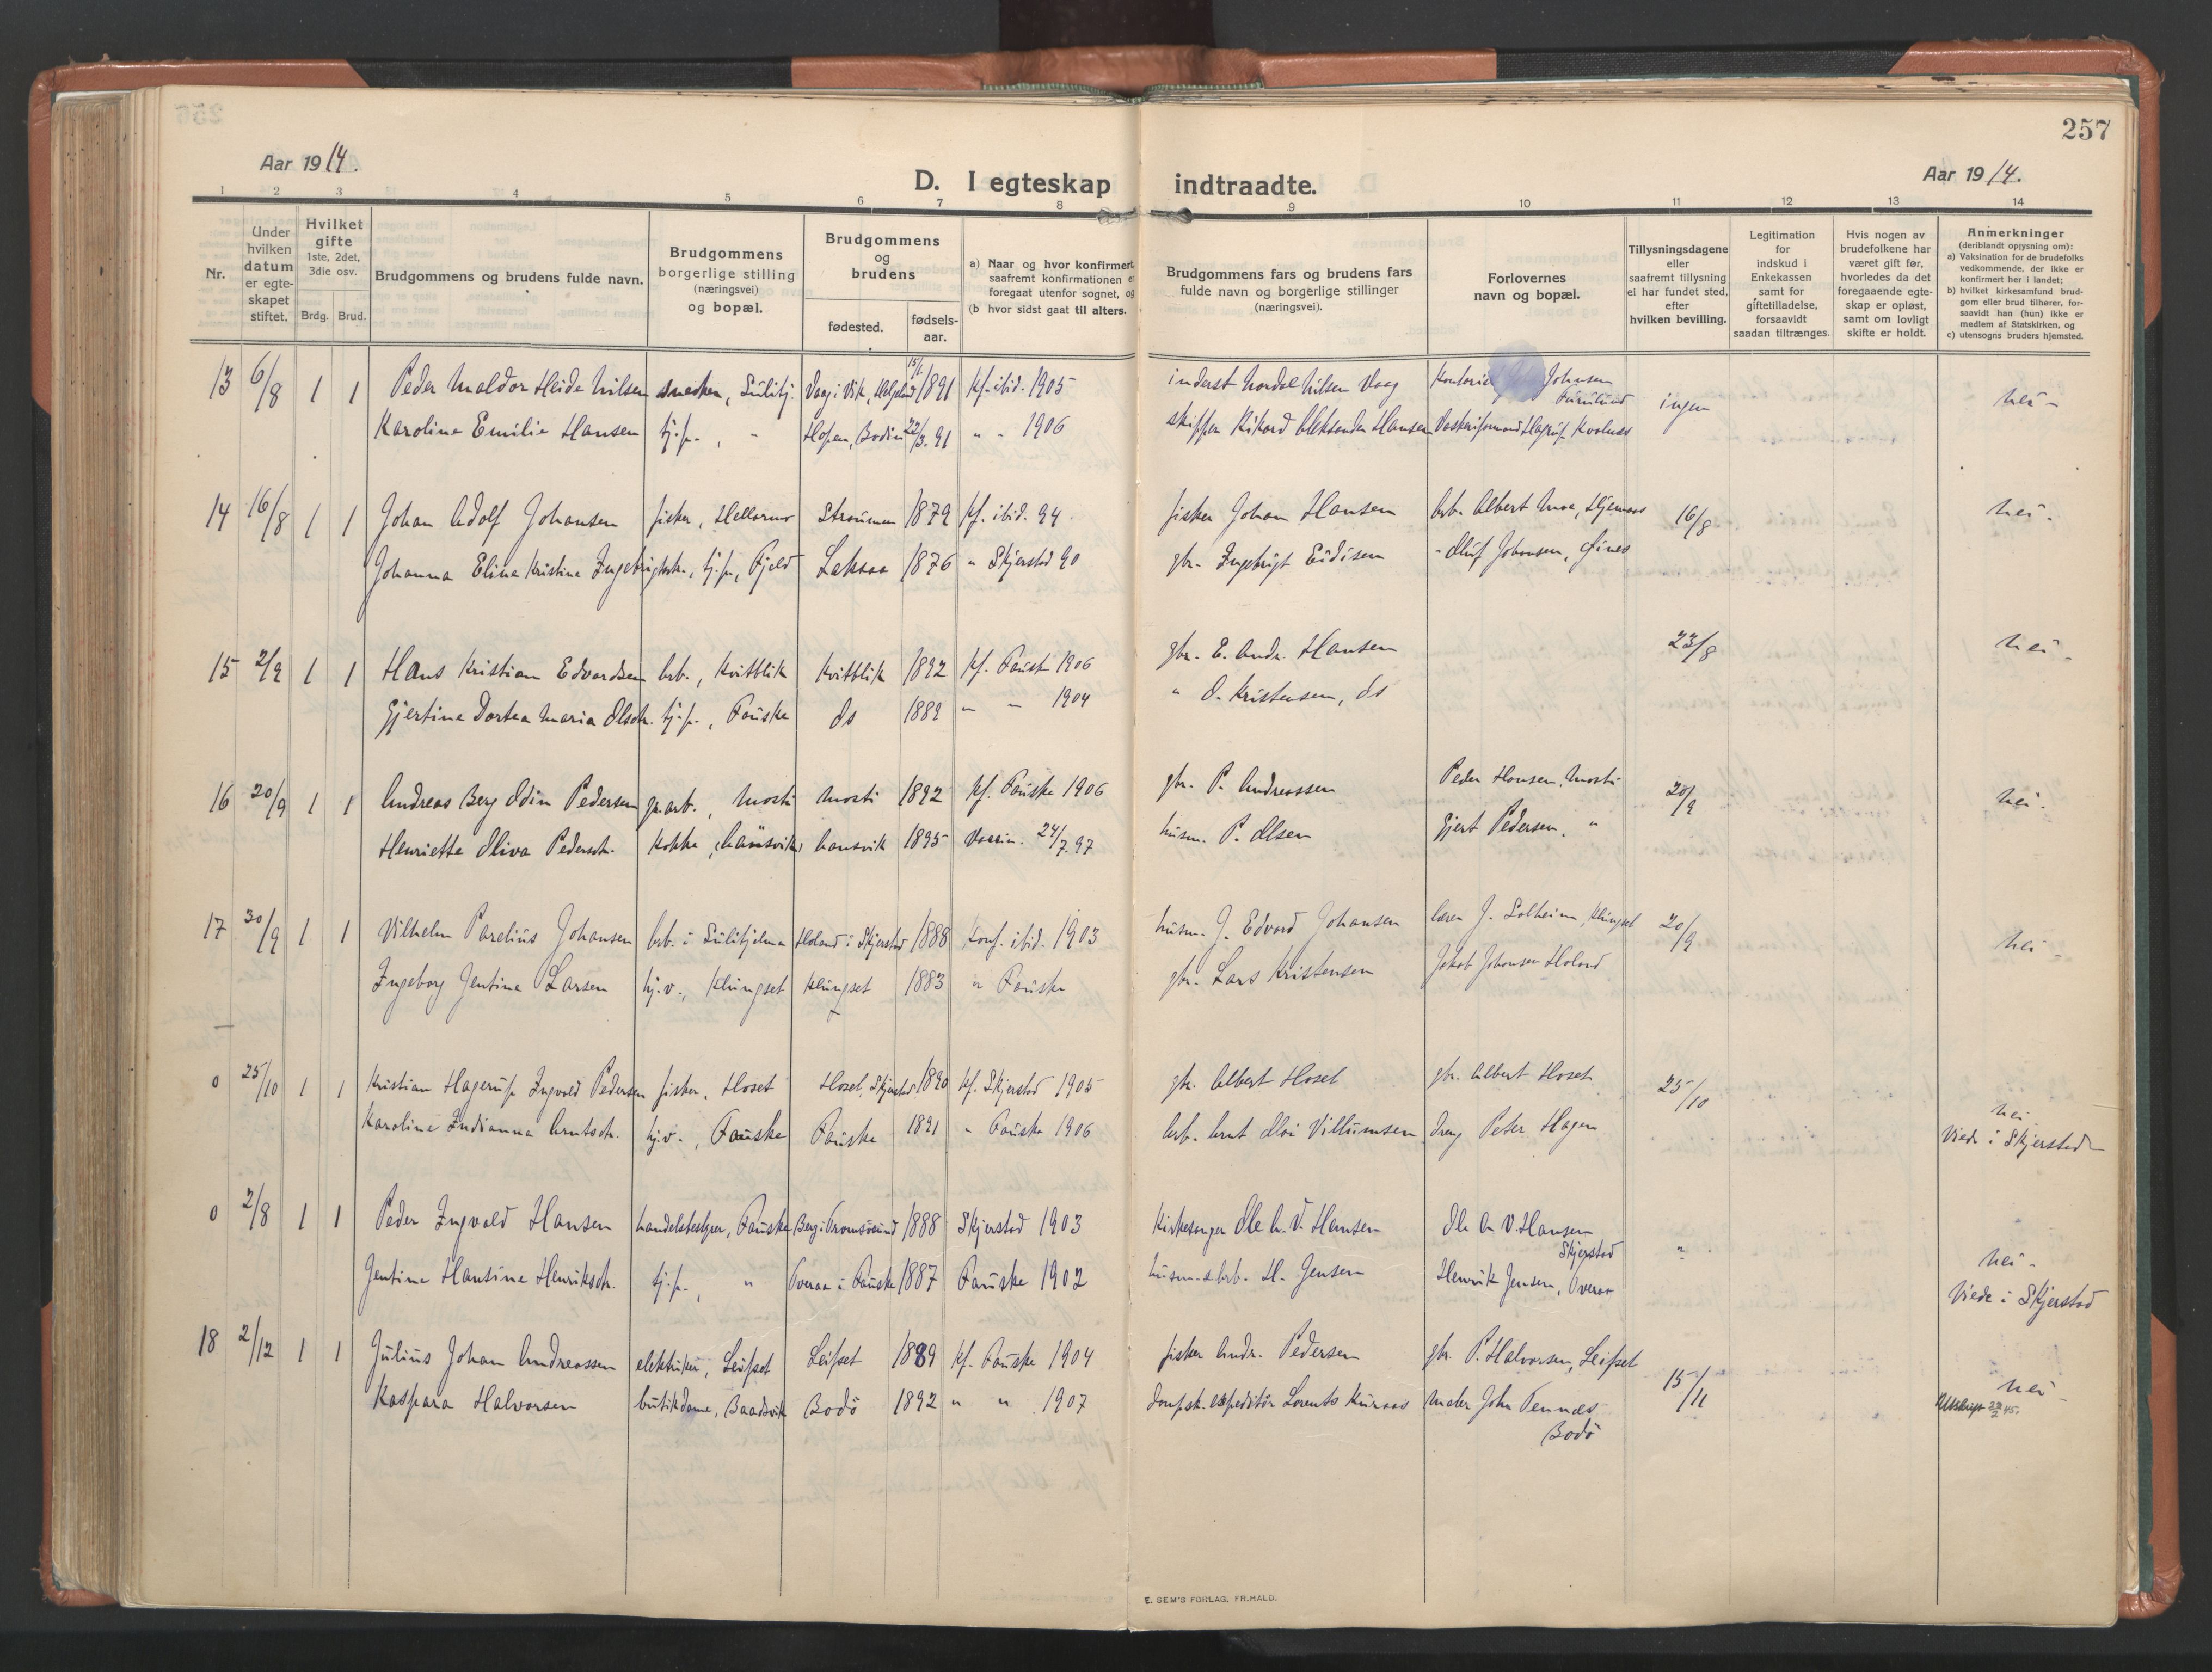 257
Aar 1914.
D. I egteskap indtraadte.
Aar 1914.
1 2 3 4 5 6 7 8 9 10 11 12 13 14
Nr.
Under hvilken datum er egte-skapet stiftet.
Hvilket gifte 1ste, 2det, 3die osv.
Brdg. Brud.
Brudgommens og brudens fulde navn.
Brudgommens borgerlige stilling (næringsvei) og bopæl.
Brudgommens og brudens
fødested.
fødsels-aar.
a) Naar og hvor konfirmert, saafremt konfirmationen er foregaat utenfor sognet, og
(b hvor sidst gaat til alters.
Brudgommens fars og brudens fars fulde navn og borgerlige stillinger (næringsvei).
Forlovernes navn og bopæl.
Tillysningsdagene eller saafremt tillysning ei har fundet sted, efter hvilken bevilling.
Legitimation for indskud i Enkekassen samt for giftetilladelse, forsaavidt saadan tiltrænges.
Hvis nogen av brudefolkene har været gift før, hvorledes da det foregaaende egte-skap er opløst, samt om lovligt skifte er holdt.
Anmerkninger (deriblandt opysning om):
a) Vaksination for de brudefolks vedkommende, der ikke er konfirmert her i landet;
b) hvilket kirkesamfund brud-gom eller brud tilhører, for-saavidt han (hun) ikke er medlem af Statskirken, og
c) utensogns bruders hjemsted.
13 6/8 1 1 Peder Haldor Heide Nilsen snedker, Sulitj. Vaag i Vik, Helgeland 15/1 1891 kf. ibid. 1905 inderst Nordal Nilsen Vaag Johnsen Furulund ingen nei -
Karoline Emilie Hansen tj.p., " Hopen, Bodin 22/3. 91 " " 1906 skipper Rikard Aleksander Hansen
14 16/8 1 1 Johan Adolf Johansen fisker, Hellarmo Strømmen 1879 kf. ibid. 94 fisker Johan Hansen arb. Albert Moe, 16/8 nei -
Johanna Elina Kristine Ingebrigtsdtr., tj.p., Fjeld Laksaa 1876 " Skjerstad 90 gbr. Ingebrigt - Oluf Johansen, Fines
15 2/9 1 1 Hans Kristian Edvardsen arb., Kvitblik Kvitblik 1892 kf. Fauske 1906 gbr. E. Andr. Hansen 23/8 nei -
Gjertine Dortea Maria Olsdtr. tj.p., Fauske ds 1889 " " 1904 " O. Kristensen, ds
16 20/9 1 1 Andreas Berg Odin Pedersen gr.arb., Mosti Mosti 1892 kf. Fauske 1906 gbr. P. Andreassen Peder Hansen, Mosti 20/9 nei -
Henriette Oliva Pedersdtr. kokke, Nausvik 1895 Vaccin. 24/7 97 husm. P. Olsen Gjert Pedersen, "
17 30/9 1 1 Vilhelm Parelius Johansen arb. i Sulitjelma Holand i Skjerstad 1888 konf. ibid. 1903 husm. J. Edvard Johansen lærer J. Solheim, Klungset 20/9 nei -
Ingeborg Jentine Larsen hj.v., Klungset Klungset 1883 " Fauske gbr. Lars Kristensen Jakob Johansen Holand
0 25/10 1 1 Kristian Hagerup Ingvald Pedersen fisker, Hoset Hoset, Skjerstad 1890 kf. Skjerstad 1905 gbr. Albert Hoset gbr. Albert Hoset 25/10 nei
Karoline Indianna Arntsdtr. hj.v., Fauske Fauske 1891 " Fauske 1906 arb. Arnt Villumsen dreng Peter Hagen Viede i Skjerstad
0 2/8 1 1 Peder Ingvald Hansen handelsbestyrer, Fauske Berg i Tromsøsund 1888 Skjerstad 1903 Kirkesanger Ole A. V. Hansen Ole A V. Hansen Skjerstad " nei -
Jentine Hansine Henriksdtr. tj.p., " Øveraa i Fauske 1887 Fauske 1902 husm. & arb. H. Jensen Henrik Jensen, Øveraa Viede i Skjerstad
18 2/12 1 1 Julius Johan Andreassen elektriker, Leifset Leifset 1889 kf. Fauske 1904 fisker Andr. Pedersen gbr. P. Halvorsen, Leifset 15/11 nei -
Kaspara Halvorsen butikdame, Baadsvik Bodö 1892 " " 1907 dampsk. expeditör Lorents maler John Tennes Bodö Utskrift 22/2 45.
E. SEM'S FORLAG, FR.HALD.